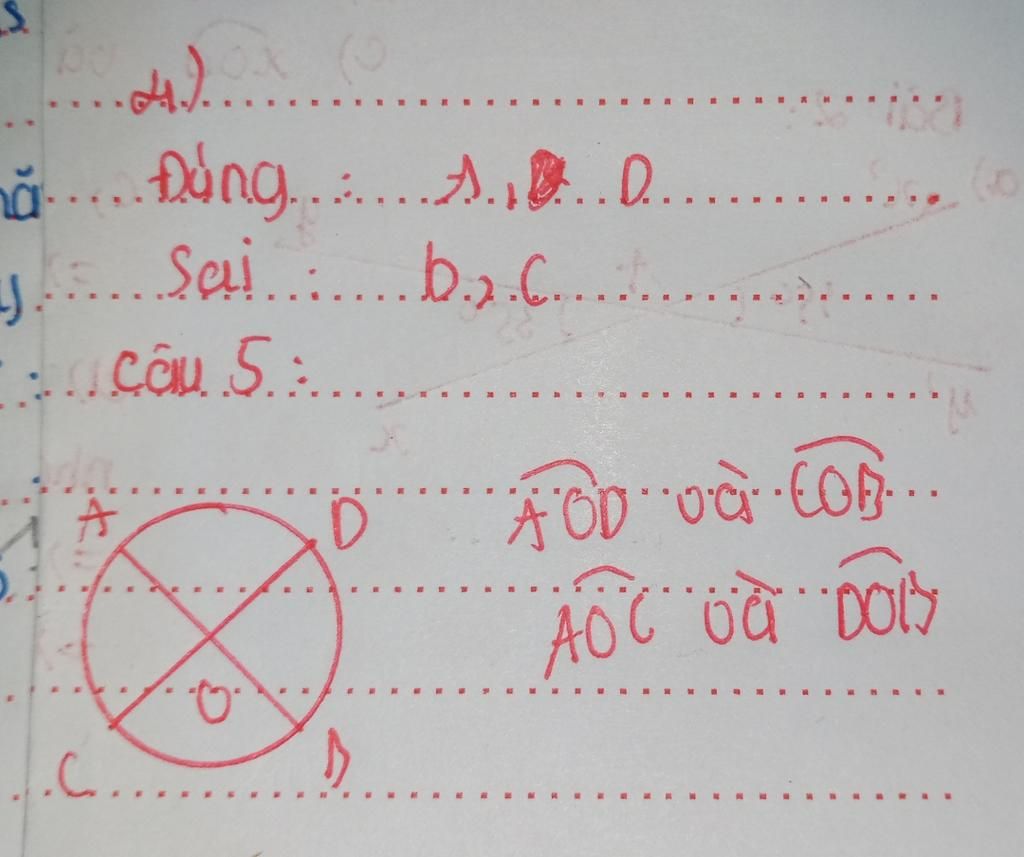 4)
Đúng : A, D
Sai : b, C
Câu 5 :
A D
AOD và COB
AOC và DOB
O
C B